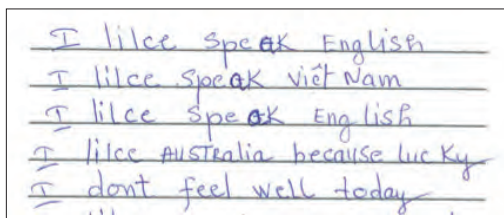 I lilce speak English
I lilce speak việt Nam
I lilce speak English
I lilce AUSTRalia because lucky
I dont feel well today